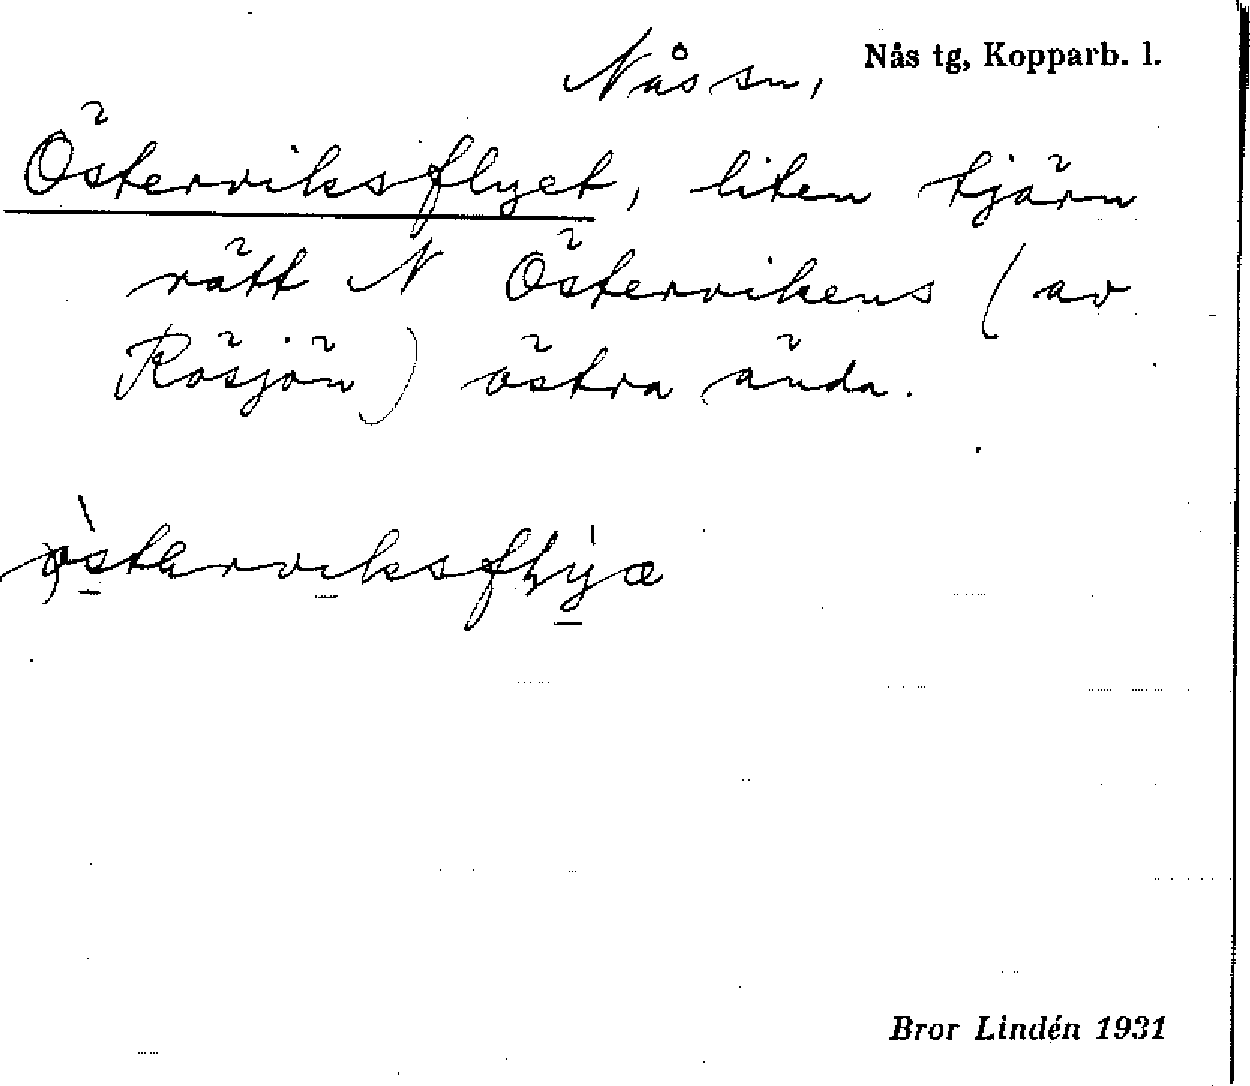 Nås sn, Nås tg, Kopparb. l.
Österviksflyet, liten tjärn
rätt N Östervikens (av
Rösjön) östra ända.
Bror Lindén 1931